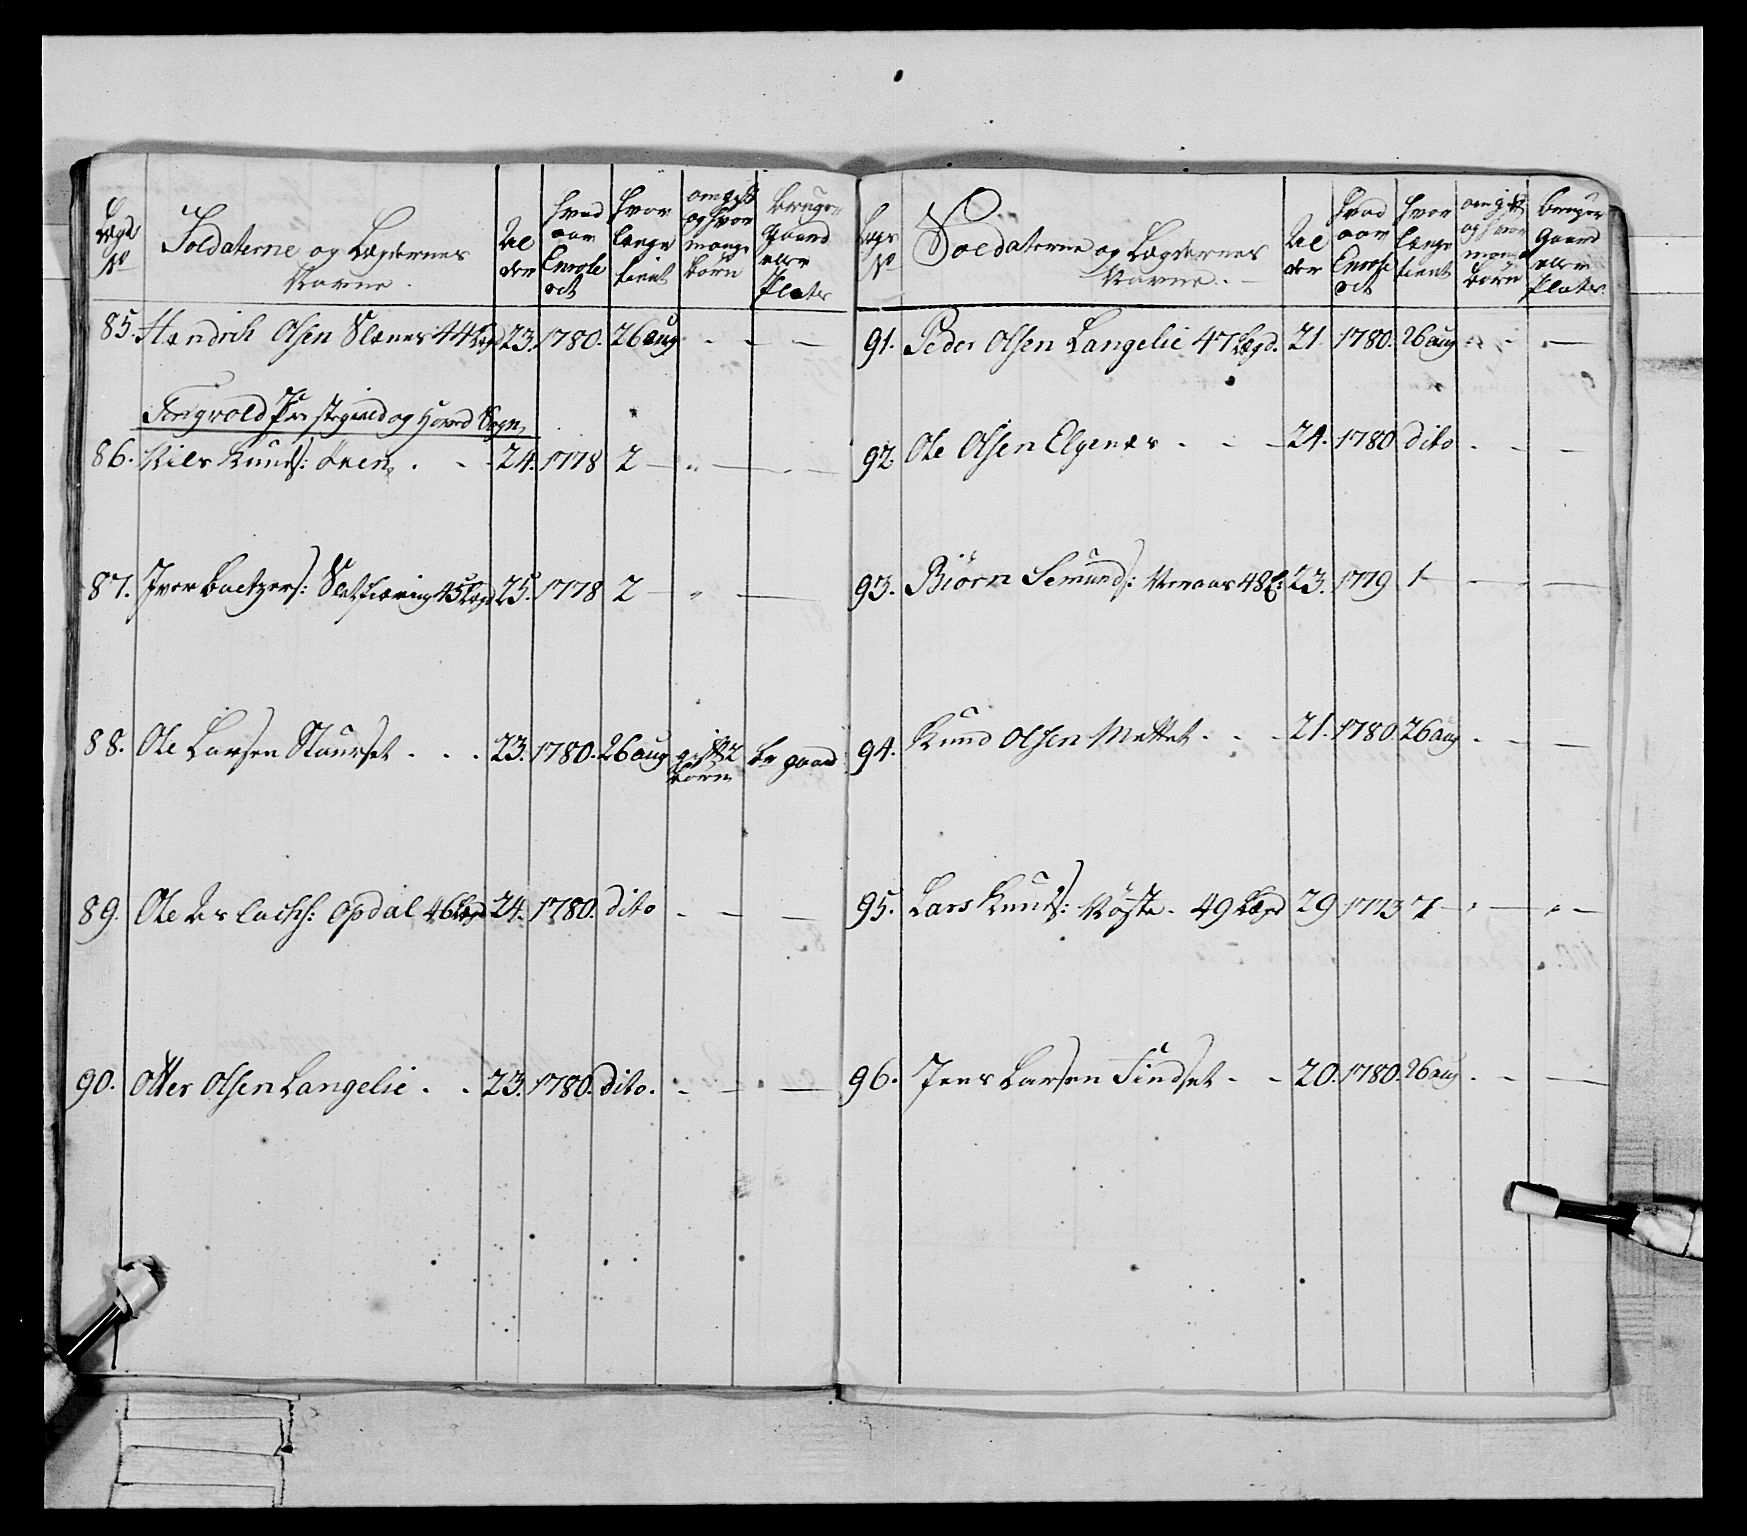 Lægd
No
Soldaterne og Lægdernes
Navne.
Al
der
Hvad
aar
Enrole
ret
Hvor
længe
tient
om gift
og hvor
mange
børn
bruger
gaard
eller
Plads
85. Hendrich Olsen Slenes 44 Lægd 23. 1780. 26 aug
Tingvold Præstegield og Hoved Sogn
86. Nils Knuds: 24. 1778 2
87. Iver Baltzers: 45 Lægd 25. 1778 2
88. Ole Larsen Staurset 23. 1780. 26 aug gift 2 br gaard
børn
89. Ole Aslachs: Opdal 46 Lægd 24. 1780. dito
90. Otter Olsen Langelie 23. 1780. dito.
Lægd
No
Soldaterne og Lægdernes
Navne.
Al
der
Hvad
aar
Enrole
ret
Hvor
længe
tient
om gift
og hvor
mange
børn
bruger
gaard
eller
Plads
91. Peder Olsen Langelie 47 Lægd. 21. 1780. 26 aug
92. Ole Olsen Elgenes 24. 1780 dito
93. Biörn Semunds: 48 L: 23. 1779 1
94. Knud Olsen Mettet 21. 1780. 26 aug
95. Lars Knuds: Nöste. 49 Lægd 29 1773 7
96. Jens Larsen Findset 20. 1780. 26 aug